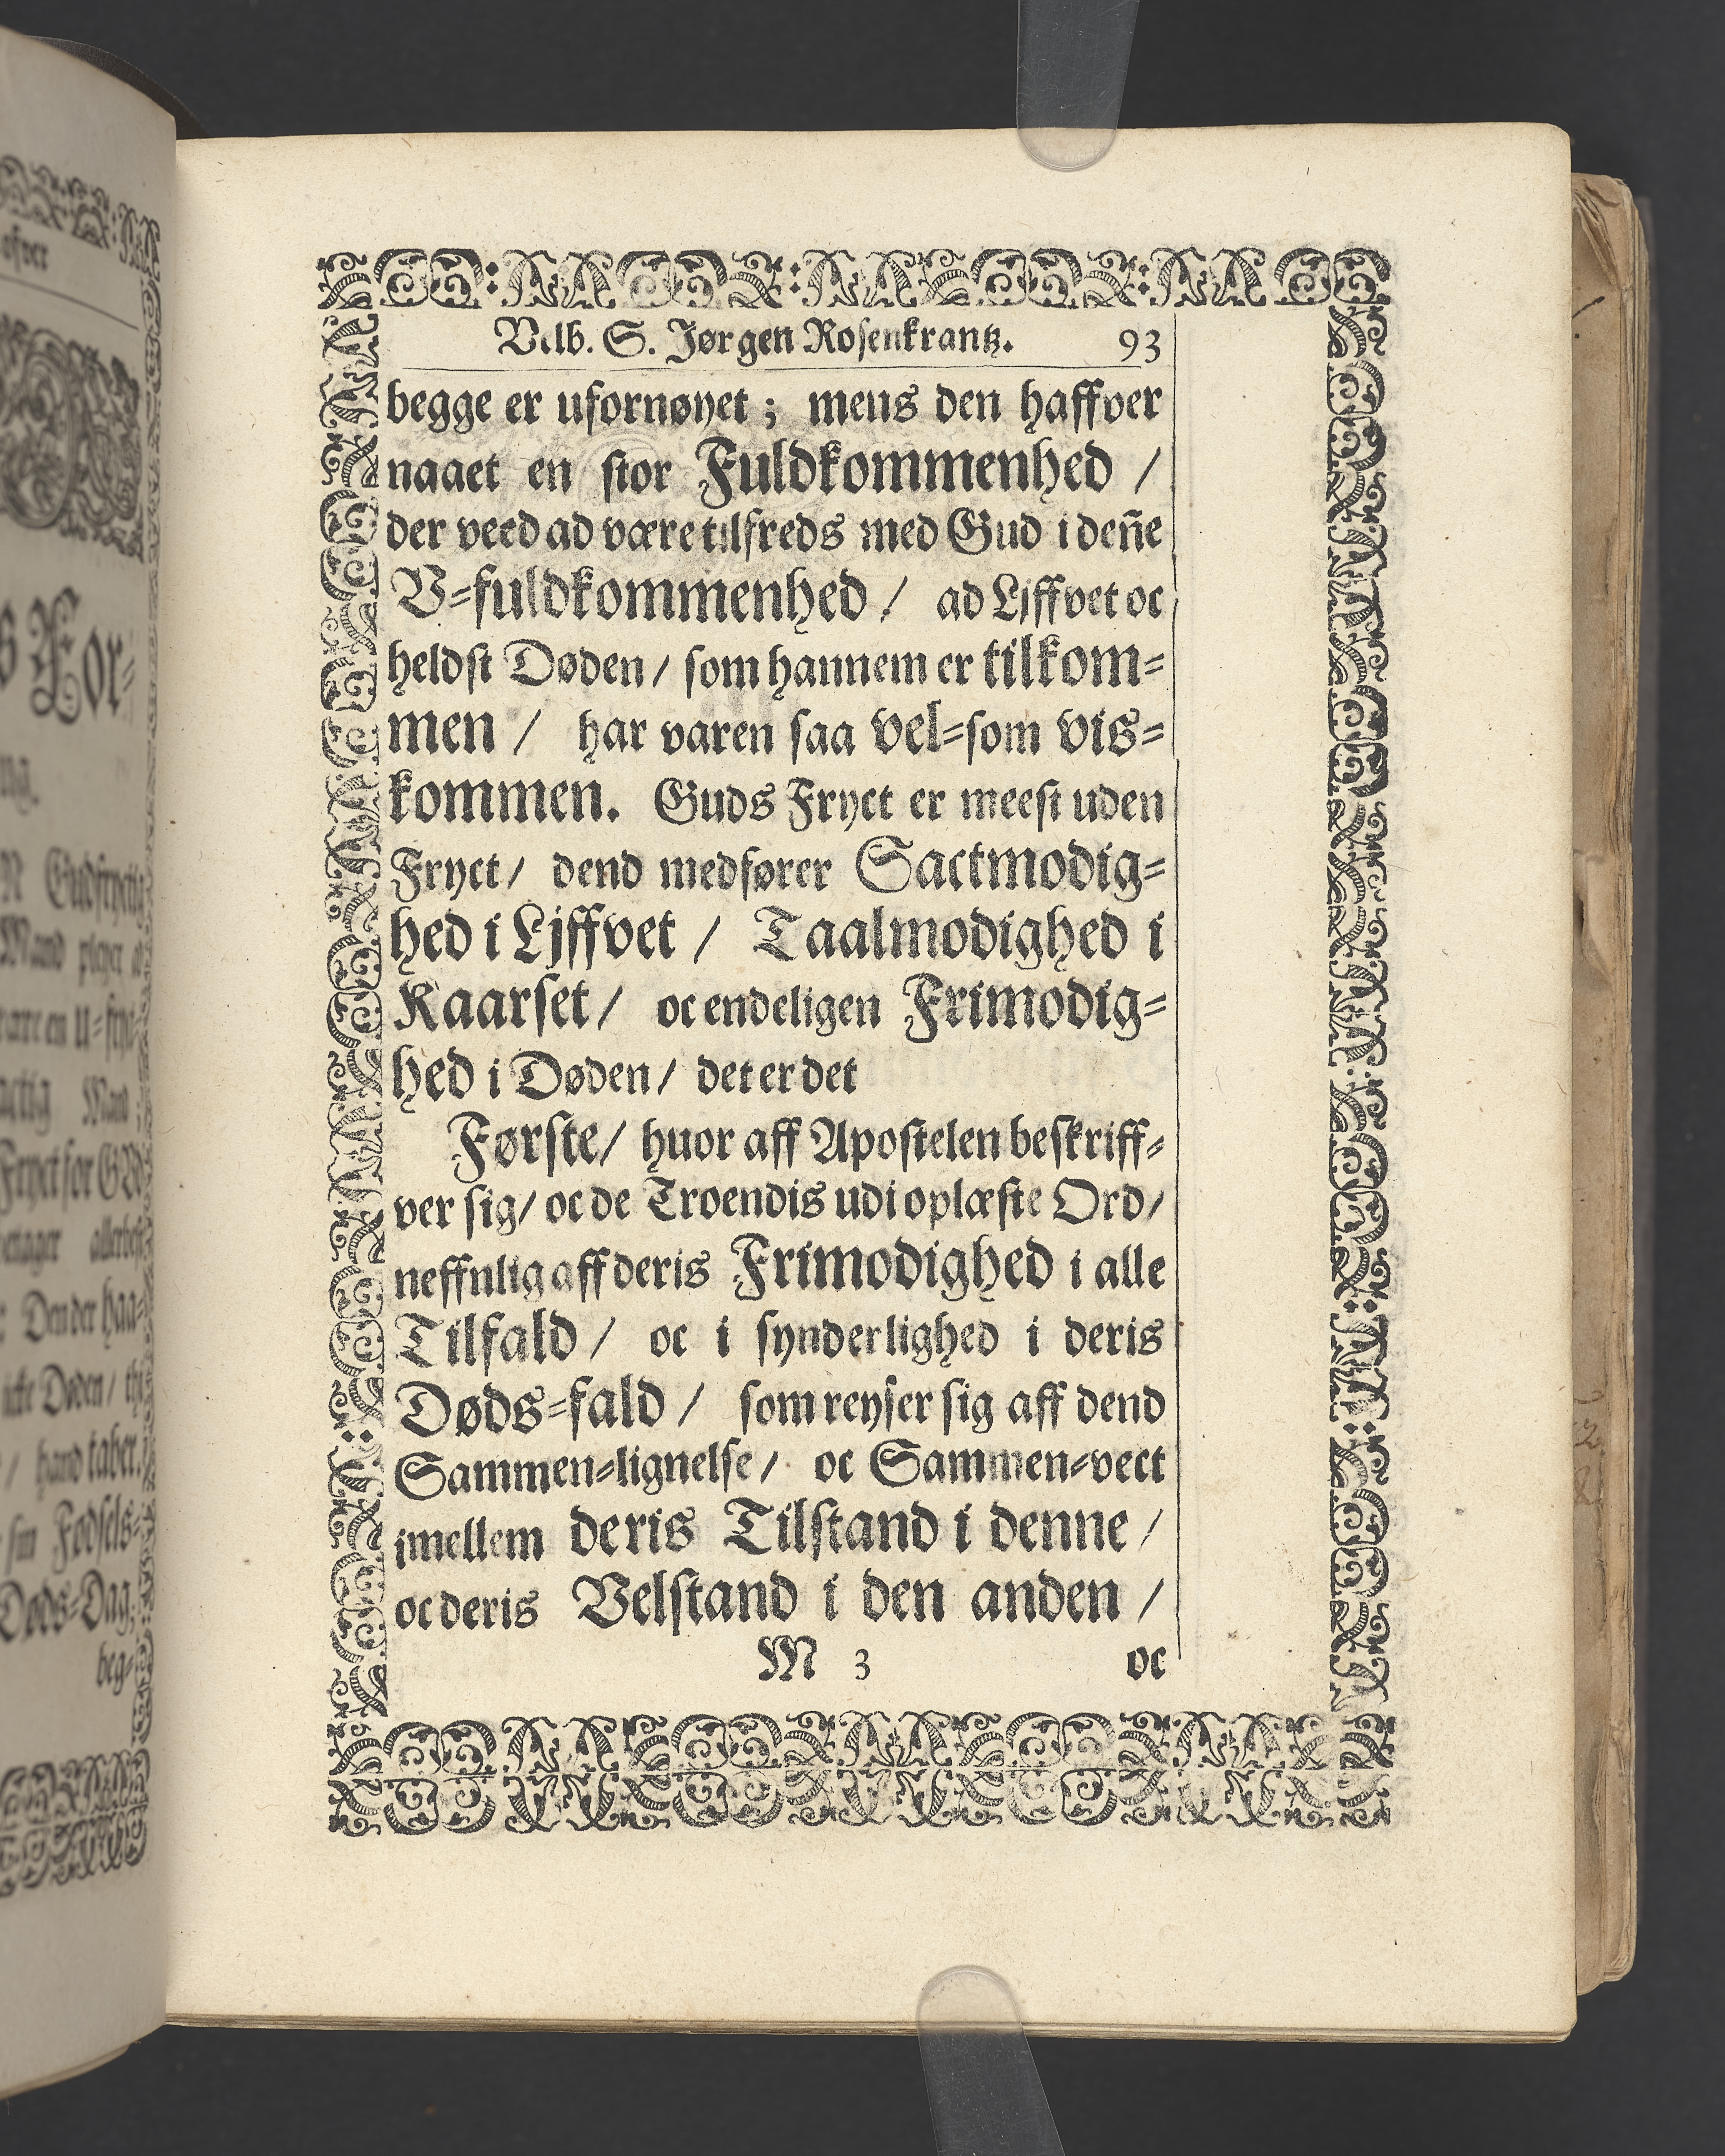 ofver
s For-
ng.
Mand pleyer a
Mand
Fryct for GUd
Den der haa-
icke Døden / thi
/ hand taber.
sin Fødsels-
Døds-Dag
beg-
Velb. S. Jørgen Rosenkrantz. 93
begge er ufornøyet ; mens den haffver
naaet en stor Fuldkommenhed /
der veed ad være tilfreds med Gud i deñe
V-fuldkommenhed / ad Ljffvet oc
heldst Døden / som hannem er tilkom-
men / har varen saa vel-som vis-
kommen. Guds Fryct er meest uden
Fryct / dend medfører Sactmodig-
hed i Ljffvet / Taalmodighed i
Kaarset / oc endeligen Frimodig-
hed i Døden / det er det
Første / huor aff Apostelen beskriff-
ver sig / oc de Troendis udi oplæste Ord /
neffnlig aff deris Frimodighed i alle
Tilfald / oc i synderlighed i deris
Døds-fald / som reyser sig aff dend
Sammen-lignelse / oc Sammen-vect
jmellem deris Tilstand i denne /
oc deris Velstand i den anden /
M 3 oc